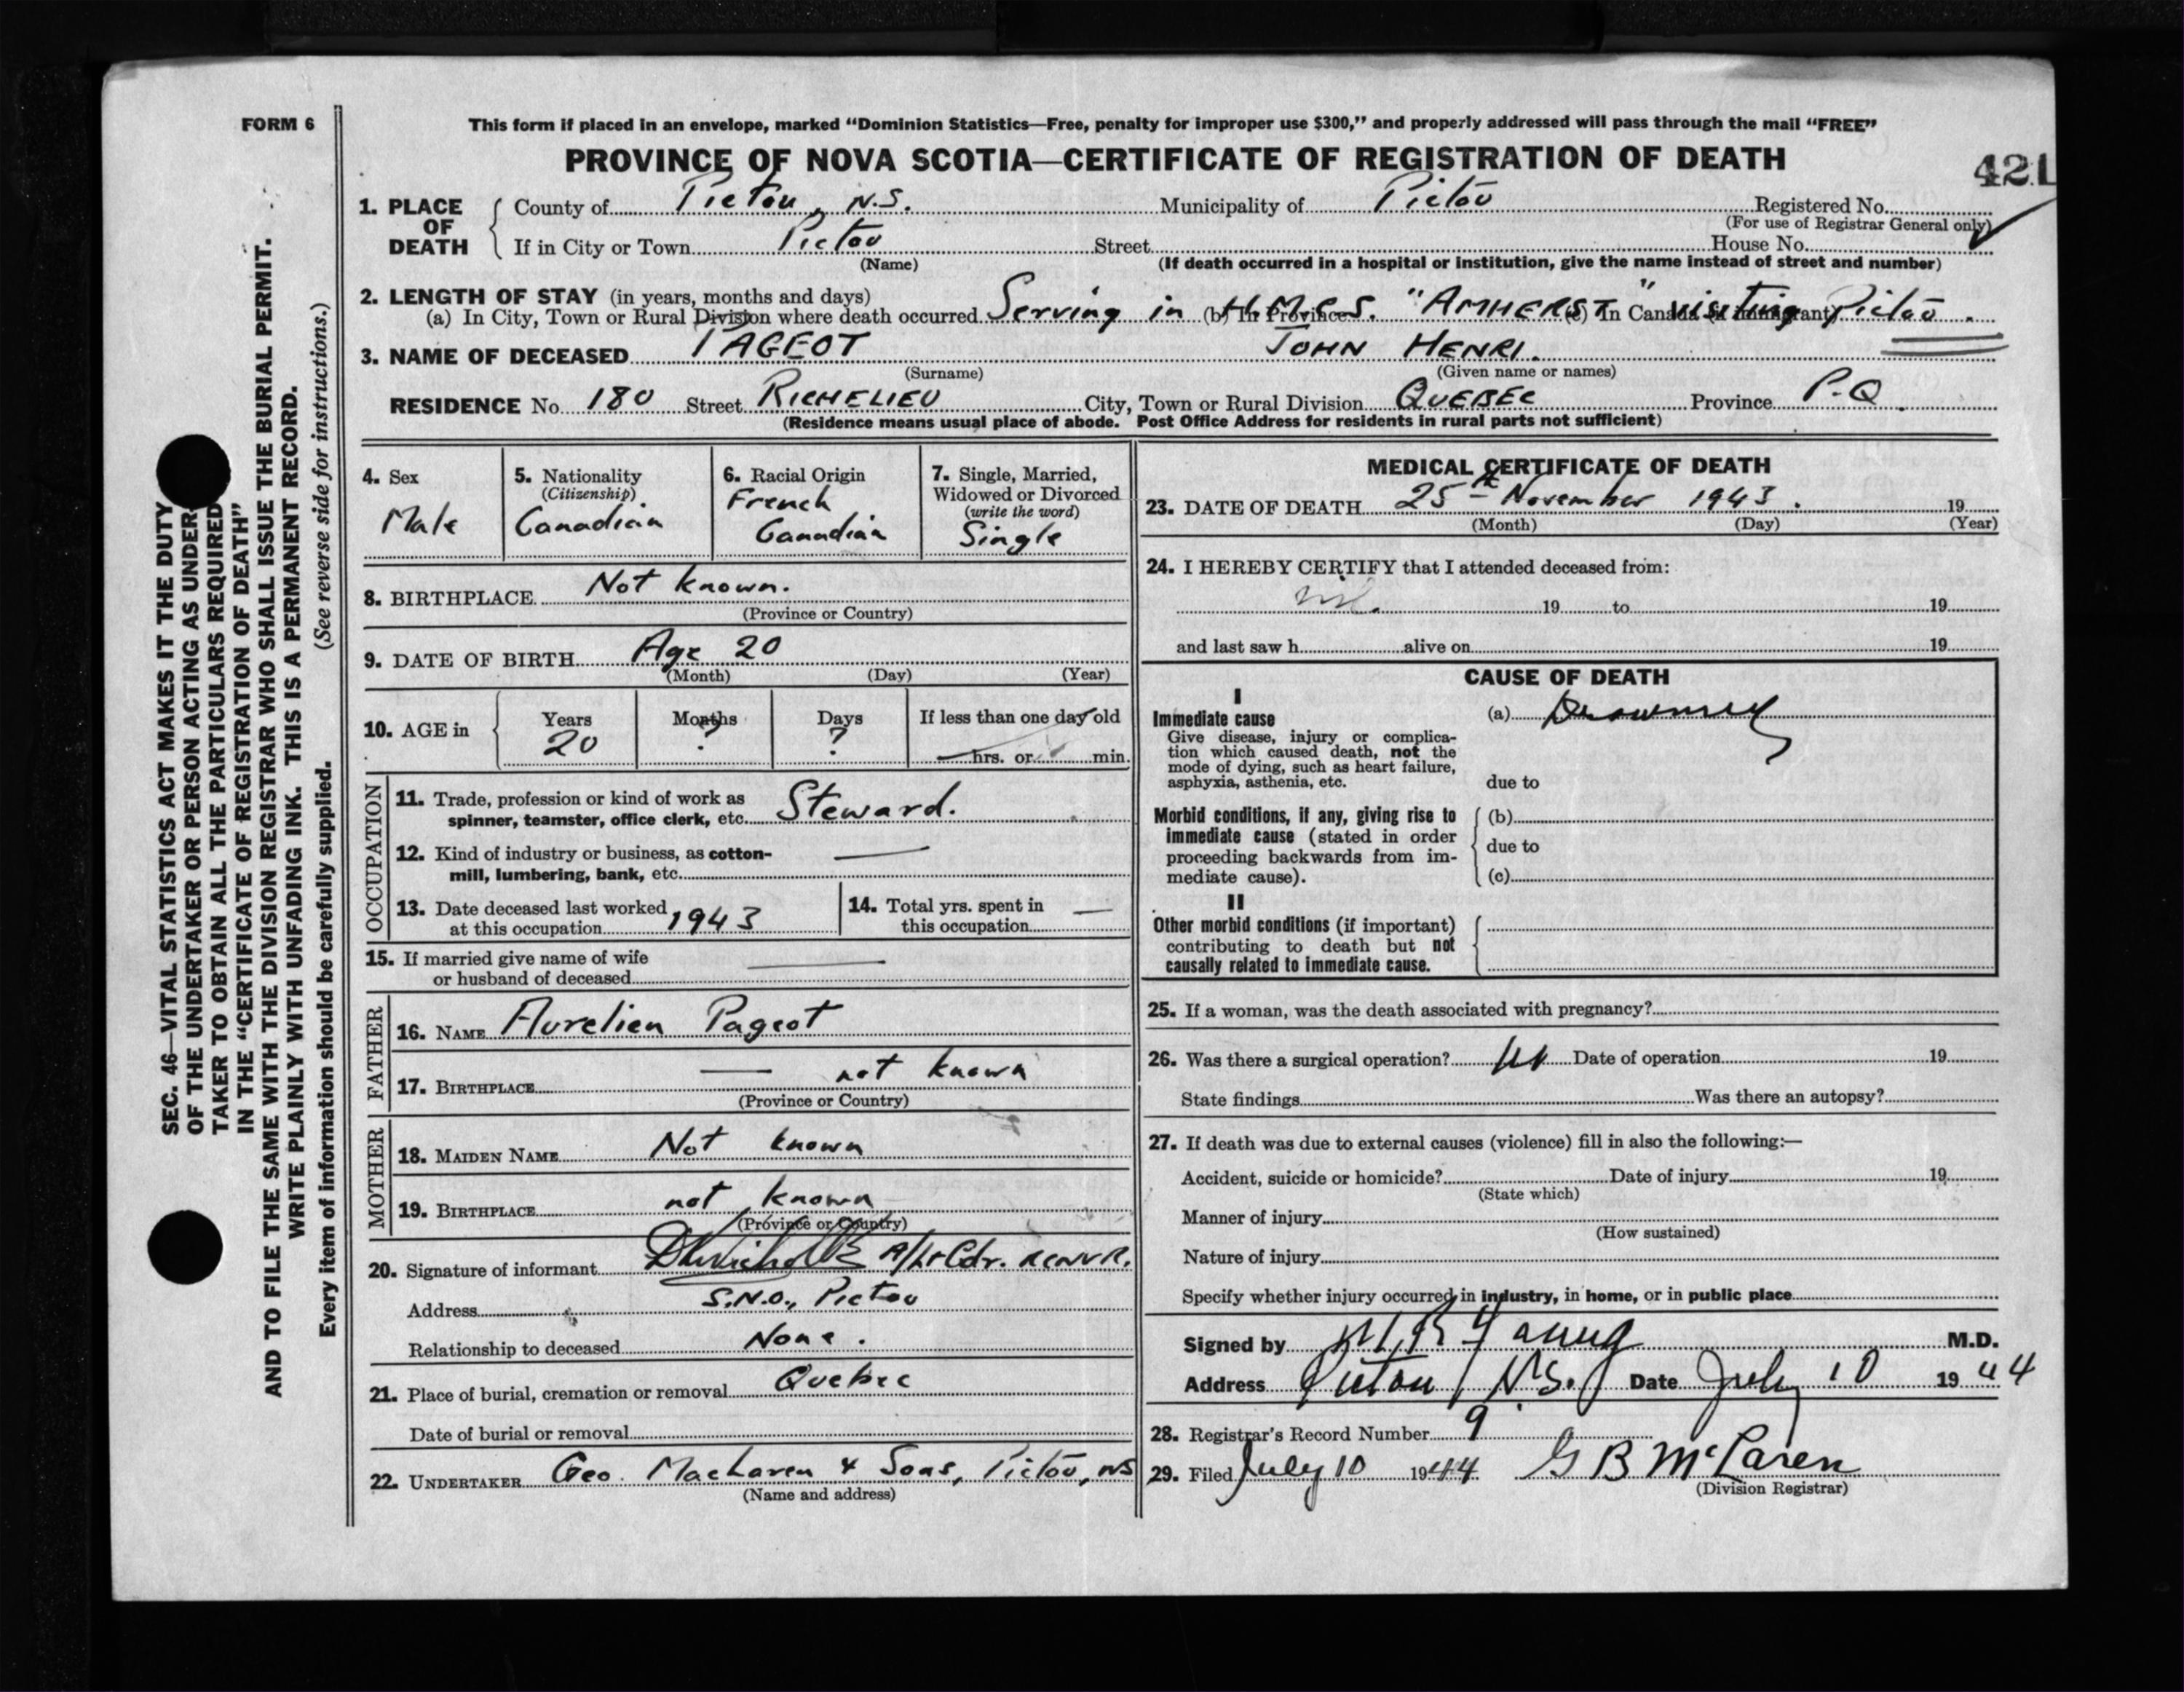 FORM 6
This form if placed in an envelope, marked “Dominion Statistics—Free, penalty for improper use $300,” and properly addressed will pass through the mail “FREE”
PROVINCE OF NOVA SCOTIA—CERTIFICATE OF REGISTRATION OF DEATH
421
1. PLACE OF DEATH County of Pictou, N.S. Municipality of Pictou Registered No.
(For use of Registrar General only)
If in City or Town Pictou Street House No.
(Name) (If death occurred in a hospital or institution, give the name instead of street and number)
2. LENGTH OF STAY (in years, months and days)
(a) In City, Town or Rural Division where death occurred Serving in (b) In Province H.M.C.S. "AMHERST" (c) In Canada (if immigrant) visiting Pictou.
3. NAME OF DECEASED PAGEOT JOHN HENRI.
(Surname) (Given name or names)
RESIDENCE No. 180 Street RICHELIEU City, Town or Rural Division QUEBEC Province P.Q.
(Residence means usual place of abode. Post Office Address for residents in rural parts not sufficient)
4. Sex Male
5. Nationality (Citizenship) Canadian
6. Racial Origin French Canadian
7. Single, Married, Widowed or Divorced (write the word) Single
8. BIRTHPLACE Not known.
(Province or Country)
9. DATE OF BIRTH Age 20
(Month) (Day) (Year)
10. AGE in Years 20 Months ? Days ? If less than one day old
hrs. or min.
OCCUPATION
11. Trade, profession or kind of work as spinner, teamster, office clerk, etc. Steward.
12. Kind of industry or business, as cotton-mill, lumbering, bank, etc. —
13. Date deceased last worked at this occupation 1943
14. Total yrs. spent in this occupation —
15. If married give name of wife or husband of deceased —
FATHER
16. NAME Aurelien Pageot
17. BIRTHPLACE — not known
(Province or Country)
MOTHER
18. MAIDEN NAME Not known
19. BIRTHPLACE not known
(Province or Country)
20. Signature of informant A/Lt Cdr. RCNVR.
Address S.N.O., Pictou
Relationship to deceased None.
21. Place of burial, cremation or removal Quebec
Date of burial or removal
22. UNDERTAKER Geo. MacLaren & Sons, Pictou, NS
(Name and address)
MEDICAL CERTIFICATE OF DEATH
23. DATE OF DEATH 25th November 1943. 19
(Month) (Day) (Year)
24. I HEREBY CERTIFY that I attended deceased from:
nil. 19 to 19
and last saw h alive on 19
CAUSE OF DEATH
I
Immediate cause
Give disease, injury or complication which caused death, not the mode of dying, such as heart failure, asphyxia, asthenia, etc.
(a) Drowning
due to
Morbid conditions, if any, giving rise to immediate cause (stated in order proceeding backwards from immediate cause).
(b)
due to
(c)
II
Other morbid conditions (if important) contributing to death but not causally related to immediate cause.
25. If a woman, was the death associated with pregnancy?
26. Was there a surgical operation? Date of operation 19
State findings Was there an autopsy?
27. If death was due to external causes (violence) fill in also the following:—
Accident, suicide or homicide? Date of injury 19
(State which)
Manner of injury
(How sustained)
Nature of injury
Specify whether injury occurred in industry, in home, or in public place
Signed by Young M.D.
Address Pictou, N.S. Date July 10 1944
28. Registrar's Record Number 9
29. Filed July 10 1944 G B McLaren
(Division Registrar)
SEC. 46—VITAL STATISTICS ACT MAKES IT THE DUTY
OF THE UNDERTAKER OR PERSON ACTING AS UNDER-
TAKER TO OBTAIN ALL THE PARTICULARS REQUIRED
IN THE “CERTIFICATE OF REGISTRATION OF DEATH”
AND TO FILE THE SAME WITH THE DIVISION REGISTRAR WHO SHALL ISSUE THE BURIAL PERMIT.
WRITE PLAINLY WITH UNFADING INK. THIS IS A PERMANENT RECORD.
Every item of information should be carefully supplied. (See reverse side for instructions.)